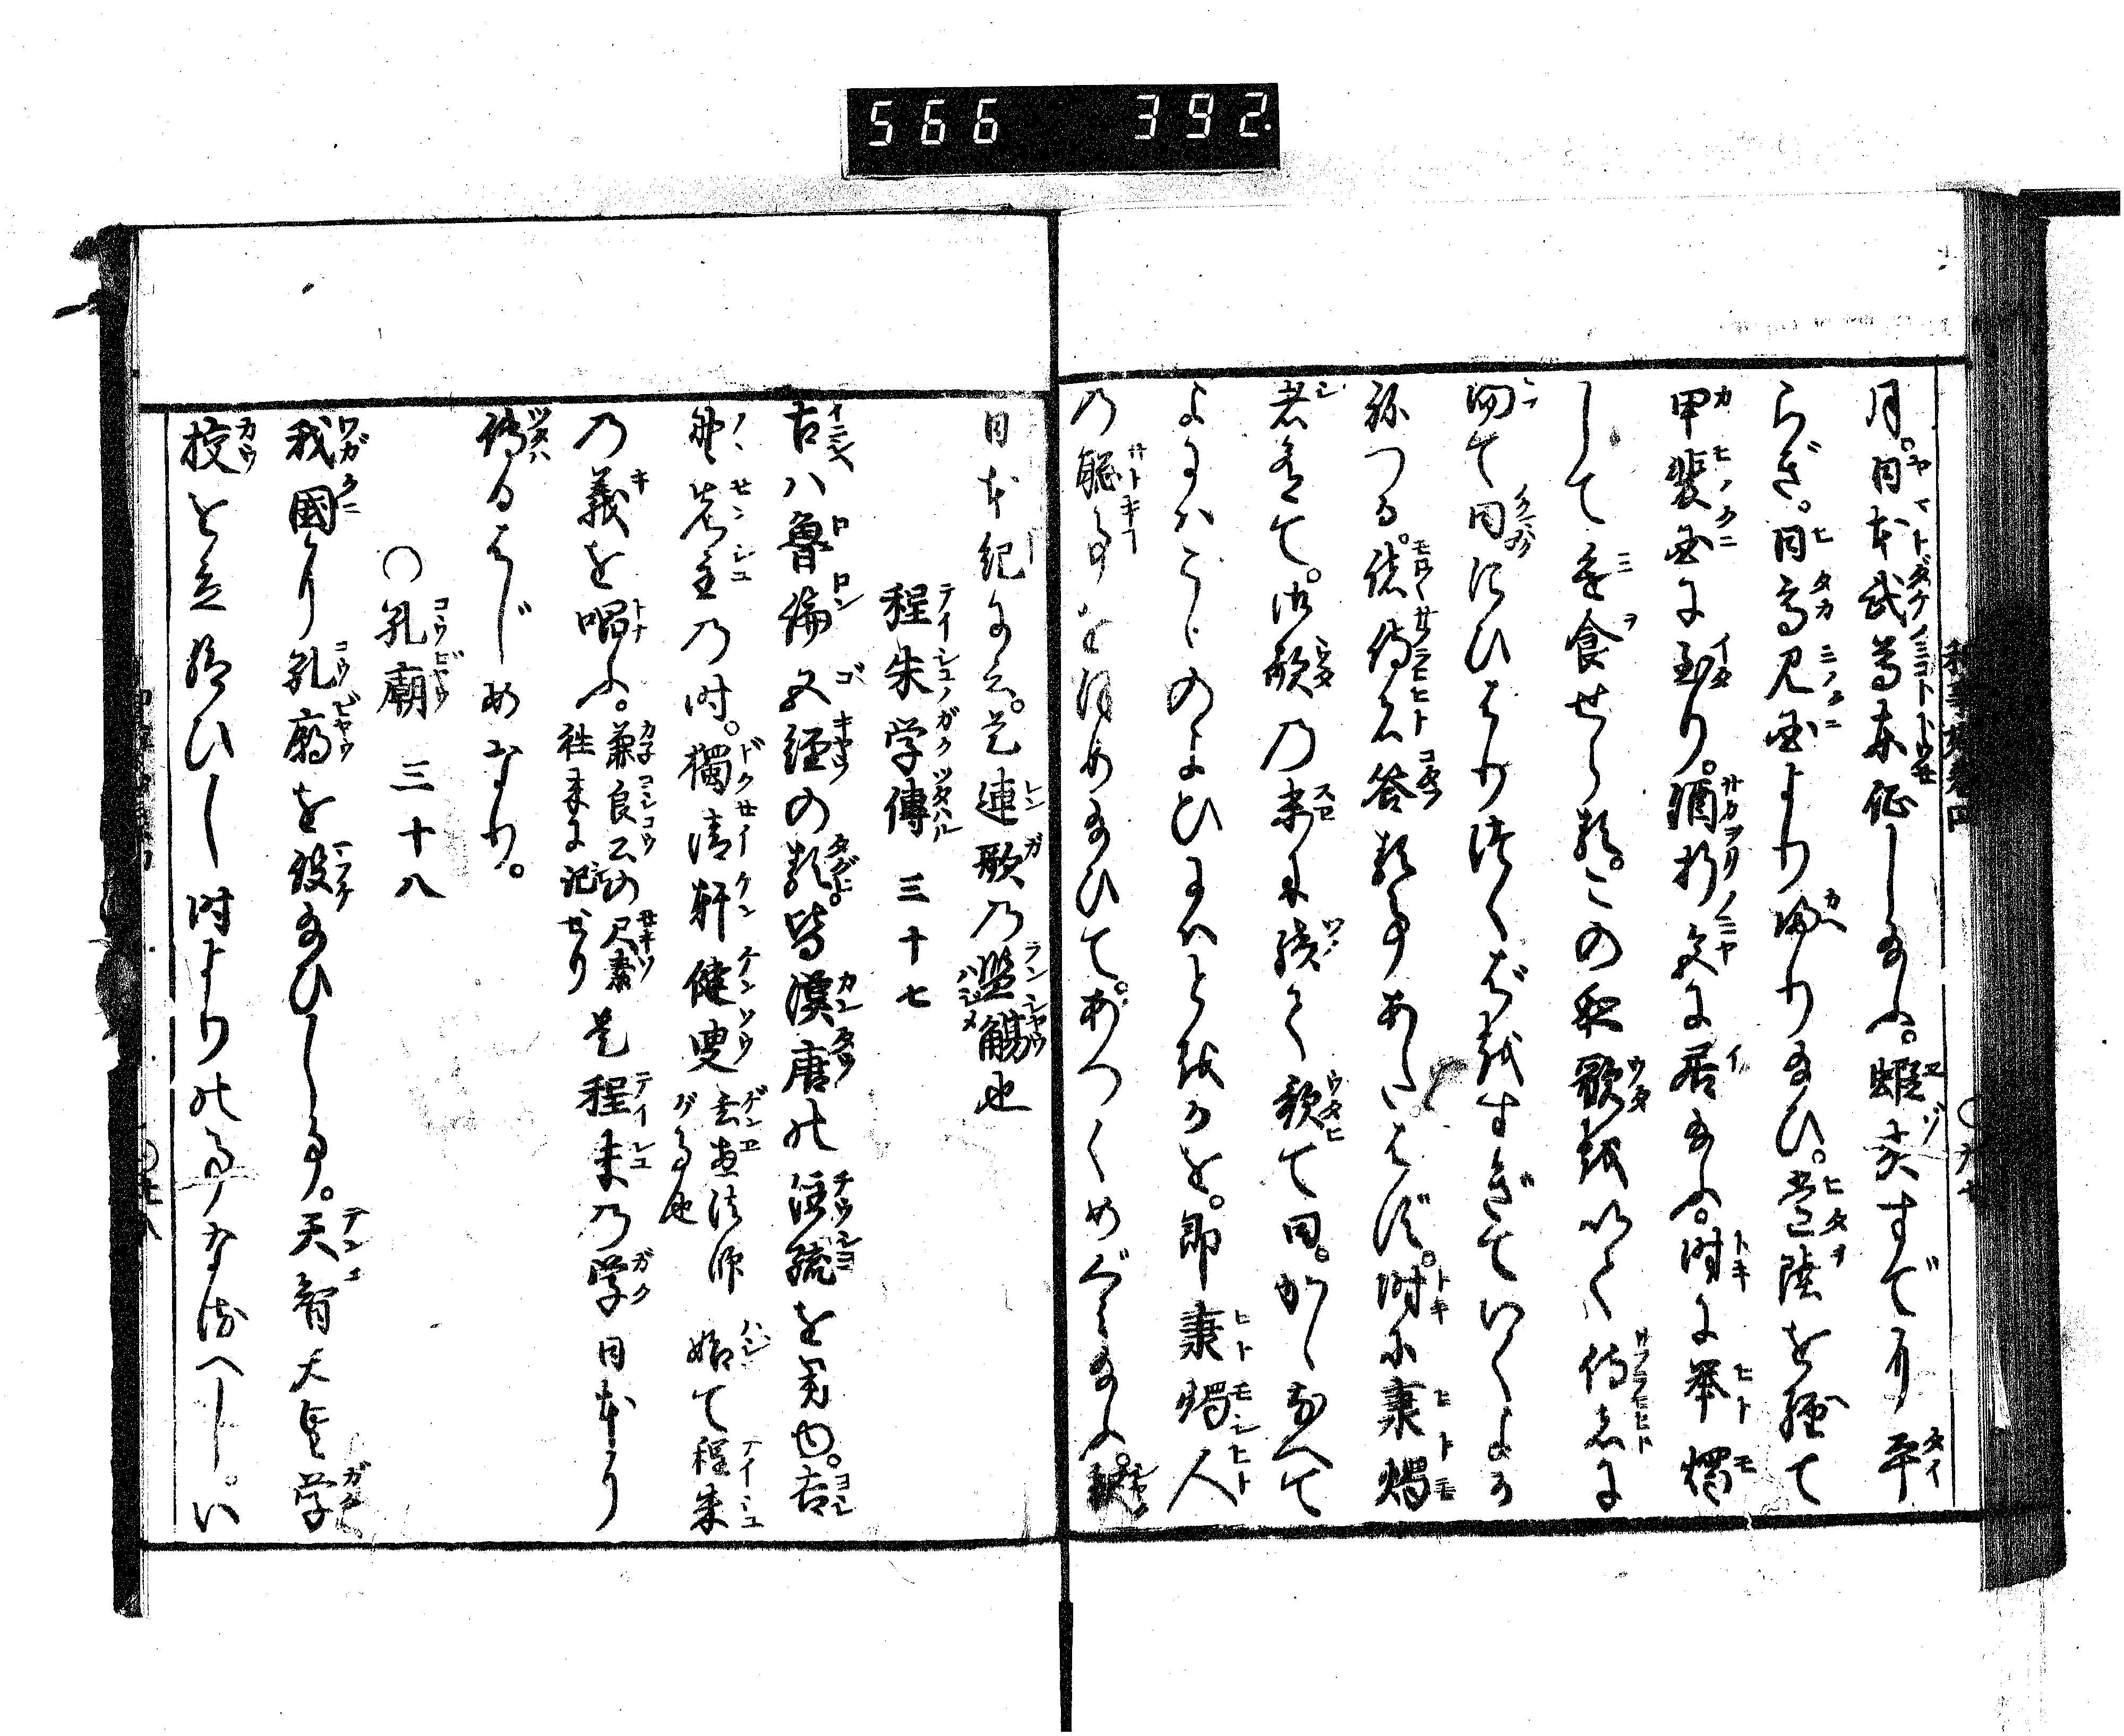 566 392
月。日本武尊東征し給ふ。蝦夷すでに平
らぎ。日高見国より歸り給ひ。常陸を歴て
甲斐国に至り。酒折宮に居給ふ。時に挙燭
して進食せらる。この夜歌を以て侍者に
問て曰にひはりつくばをすぎていくよか
ねつる。諸侍者答る事あたはず。時に秉燭
者ありて。御歌の末に続て歌て曰。かゝなへて
よにはこゝのよひにはとをかを。即秉燭人
の聡事をほめ給ひて。あつくめぐみ給ふ。
日本紀に云。是連歌の濫觴也
程朱学傳 三十七
古ハ魯論五経の類。皆漢唐の注疏を用ゆ。
主の時。獨清軒健叟玄恵法師 始て程朱
の義を唱ふ。兼良公の尺素
往来に記せり 是程朱の学日本に
傳るはじめなり。
○孔廟 三十八
我國に孔廟を設給ひし事。天智天皇学
校を立給ひし時よりの事なるべし。い